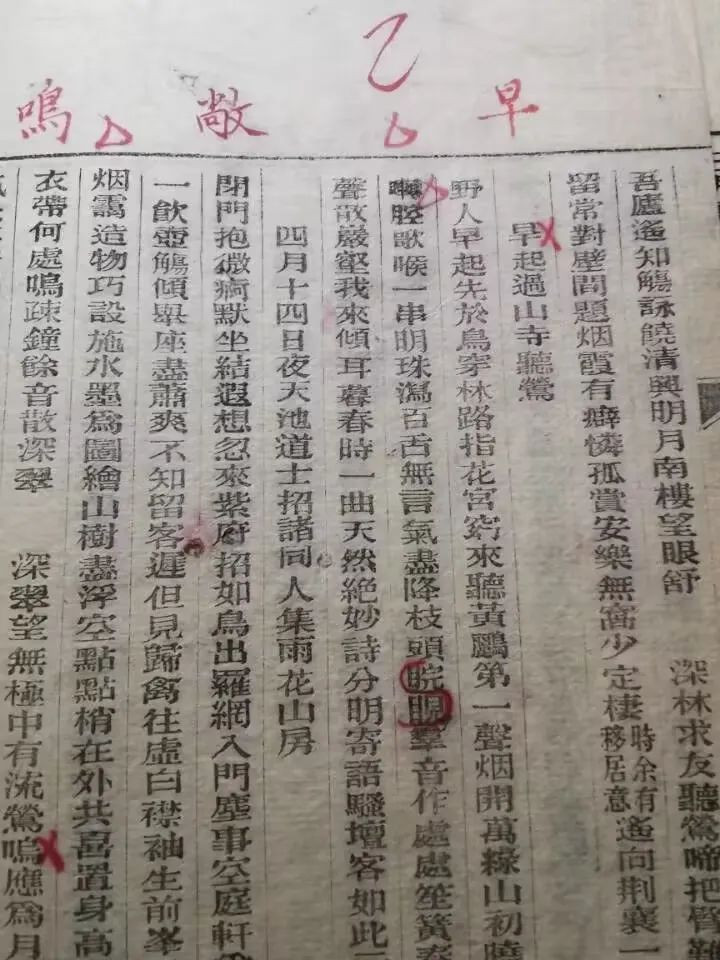 早
乙
敞
鳴
吾廬遙知觴詠饒清興明月南樓望眼舒　深林求友聽鶯啼把臂難
留常對壁間題烟霞有癖憐孤賞安樂無窩少定棲時余有移居意遙向荆襄一
早起過山寺聽鶯
野人早起先於鳥穿林路指花宮窈來聽黃鸝第一聲烟開萬綠山初曉
腔歌喉一串明珠瀉百舌無言氣盡降枝頭睆睍羣音作處處笙簧奏
聲散巖壑我來傾耳暮春時一曲天然絕妙詩分明寄語騷壇客如此
四月十四日夜天池道士招諸同人集雨花山房
閉門抱微痾默坐結遐想忽來紫府招如鳥出羅網入門塵事空庭軒
一飲壺觴傾舉座盡蕭爽不知留客遲但見歸禽往虛白襟袖生前峯
烟靄造物巧設施水墨爲圖繪山樹盡浮空點點梢在外共喜置身高
衣帶何處鳴疎鐘餘音散深翠　深翠望無極中有流鶯嗚應爲月